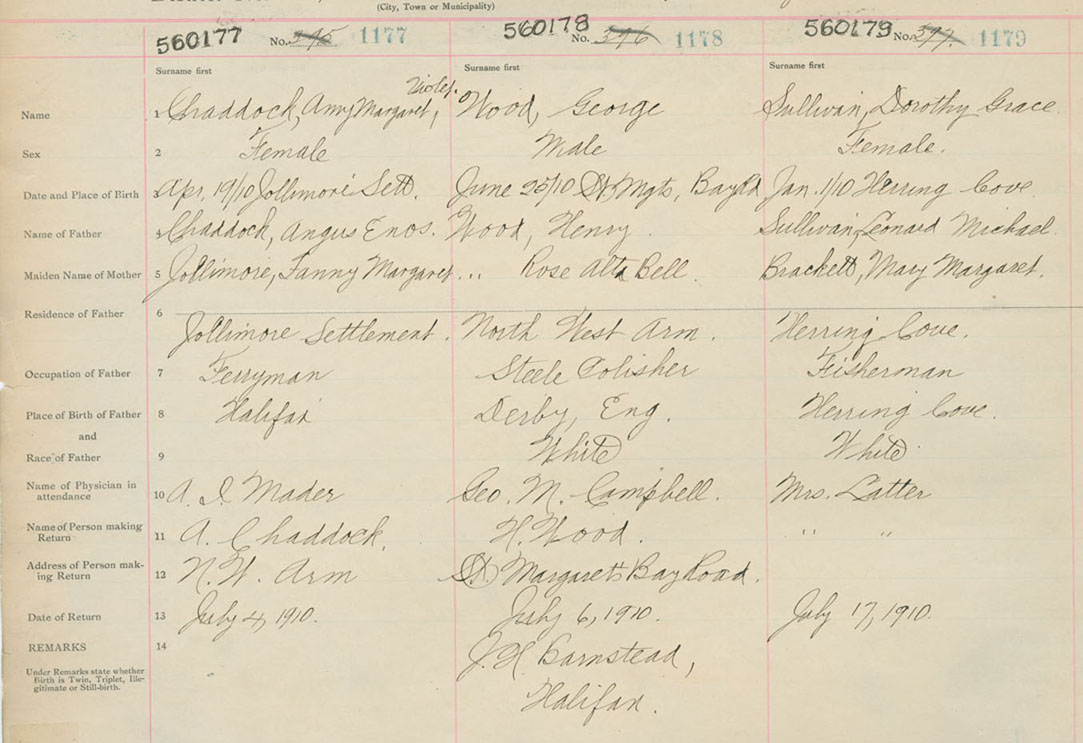 (City, Town or Municipality)
560177 No. 395 1177 560178 No. 396 1178 560179 No. 397. 1179
Surname first Surname first Surname first
Violet.
Name 1 Chaddock, Amy Margaret, Wood, George Sullivan, Dorothy Grace
Sex 2 Female Male Female.
Date and Place of Birth 3 Apr. 19/10 Jollimore Sett. June 25/10 St Mgts, Bay Rd Jan. 1/10 Herring Cove
Name of Father 4 Chaddock, Angus Enos. Wood, Henry. Sullivan, Leonard Michael.
Maiden Name of Mother 5 Jollimore, Fanny Margaret ... Rose Alta Bell. Brackett, Mary Margaret.
Residence of Father 6
Jollimore Settlement. North West Arm. Herring Cove.
Occupation of Father 7 Ferryman Steele Polisher Fisherman
Place of Birth of Father 8 Halifax Derby, Eng. Herring Cove.
and
Race of Father 9 White White
Name of Physician in attendance 10 A. I. Mader Geo. M. Campbell. Mrs. Latter
Name of Person making Return 11 A. Chaddock. H. Wood. " "
Address of Person making Return 12 N. W. Arm St Margarets Bay Road.
Date of Return 13 July 4, 1910. July 6, 1910. July 17, 1910.
REMARKS 14 J. H. Barnstead,
Under Remarks state whether
Birth is Twin, Triplet, Ille-
gitimate or Still-birth.
Halifax.